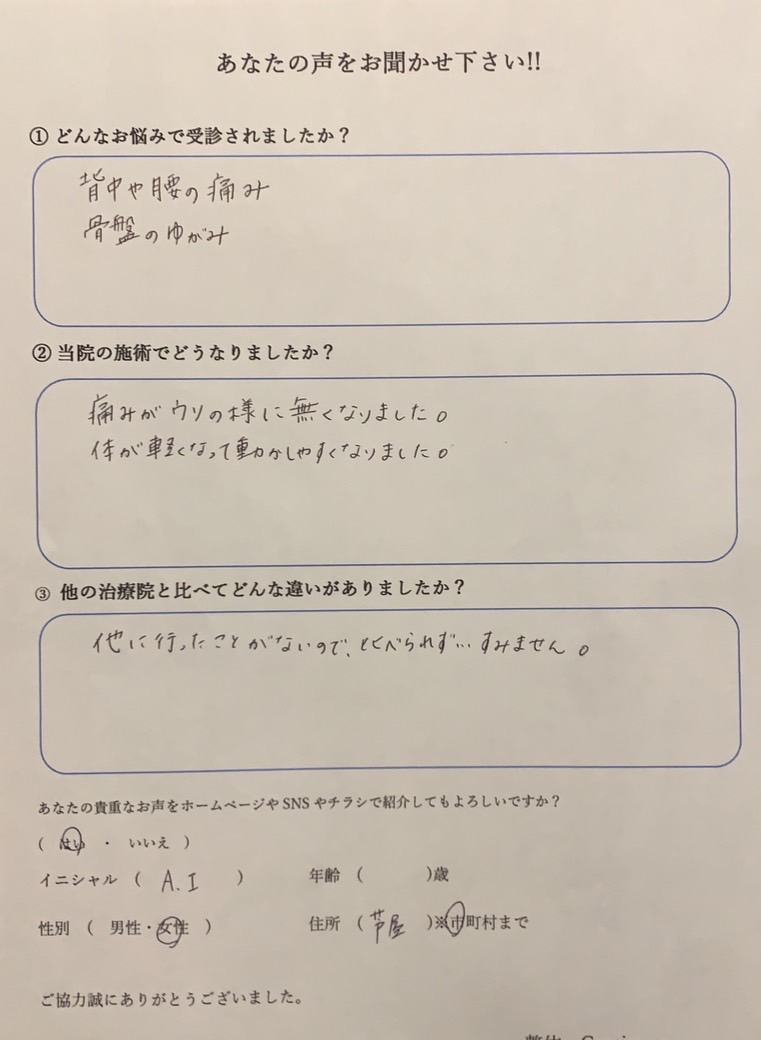 あなたの声をお聞かせ下さい!!
① どんなお悩みで受診されましたか？
背中や腰の痛み
骨盤のゆがみ
② 当院の施術でどうなりましたか？
痛みがウソの様に無くなりました。
体が軽くなって動かしやすくなりました。
③ 他の治療院と比べてどんな違いがありましたか？
他に行ったことがないので、比べられず… すみません。
あなたの貴重なお声をホームページやSNSやチラシで紹介してもよろしいですか？
（ はい ・ いいえ ）
イニシャル （ A.I ） 年齢 （ ）歳
性別 （ 男性・女性 ） 住所 （ 芦屋 ）※市町村まで
ご協力誠にありがとうございました。